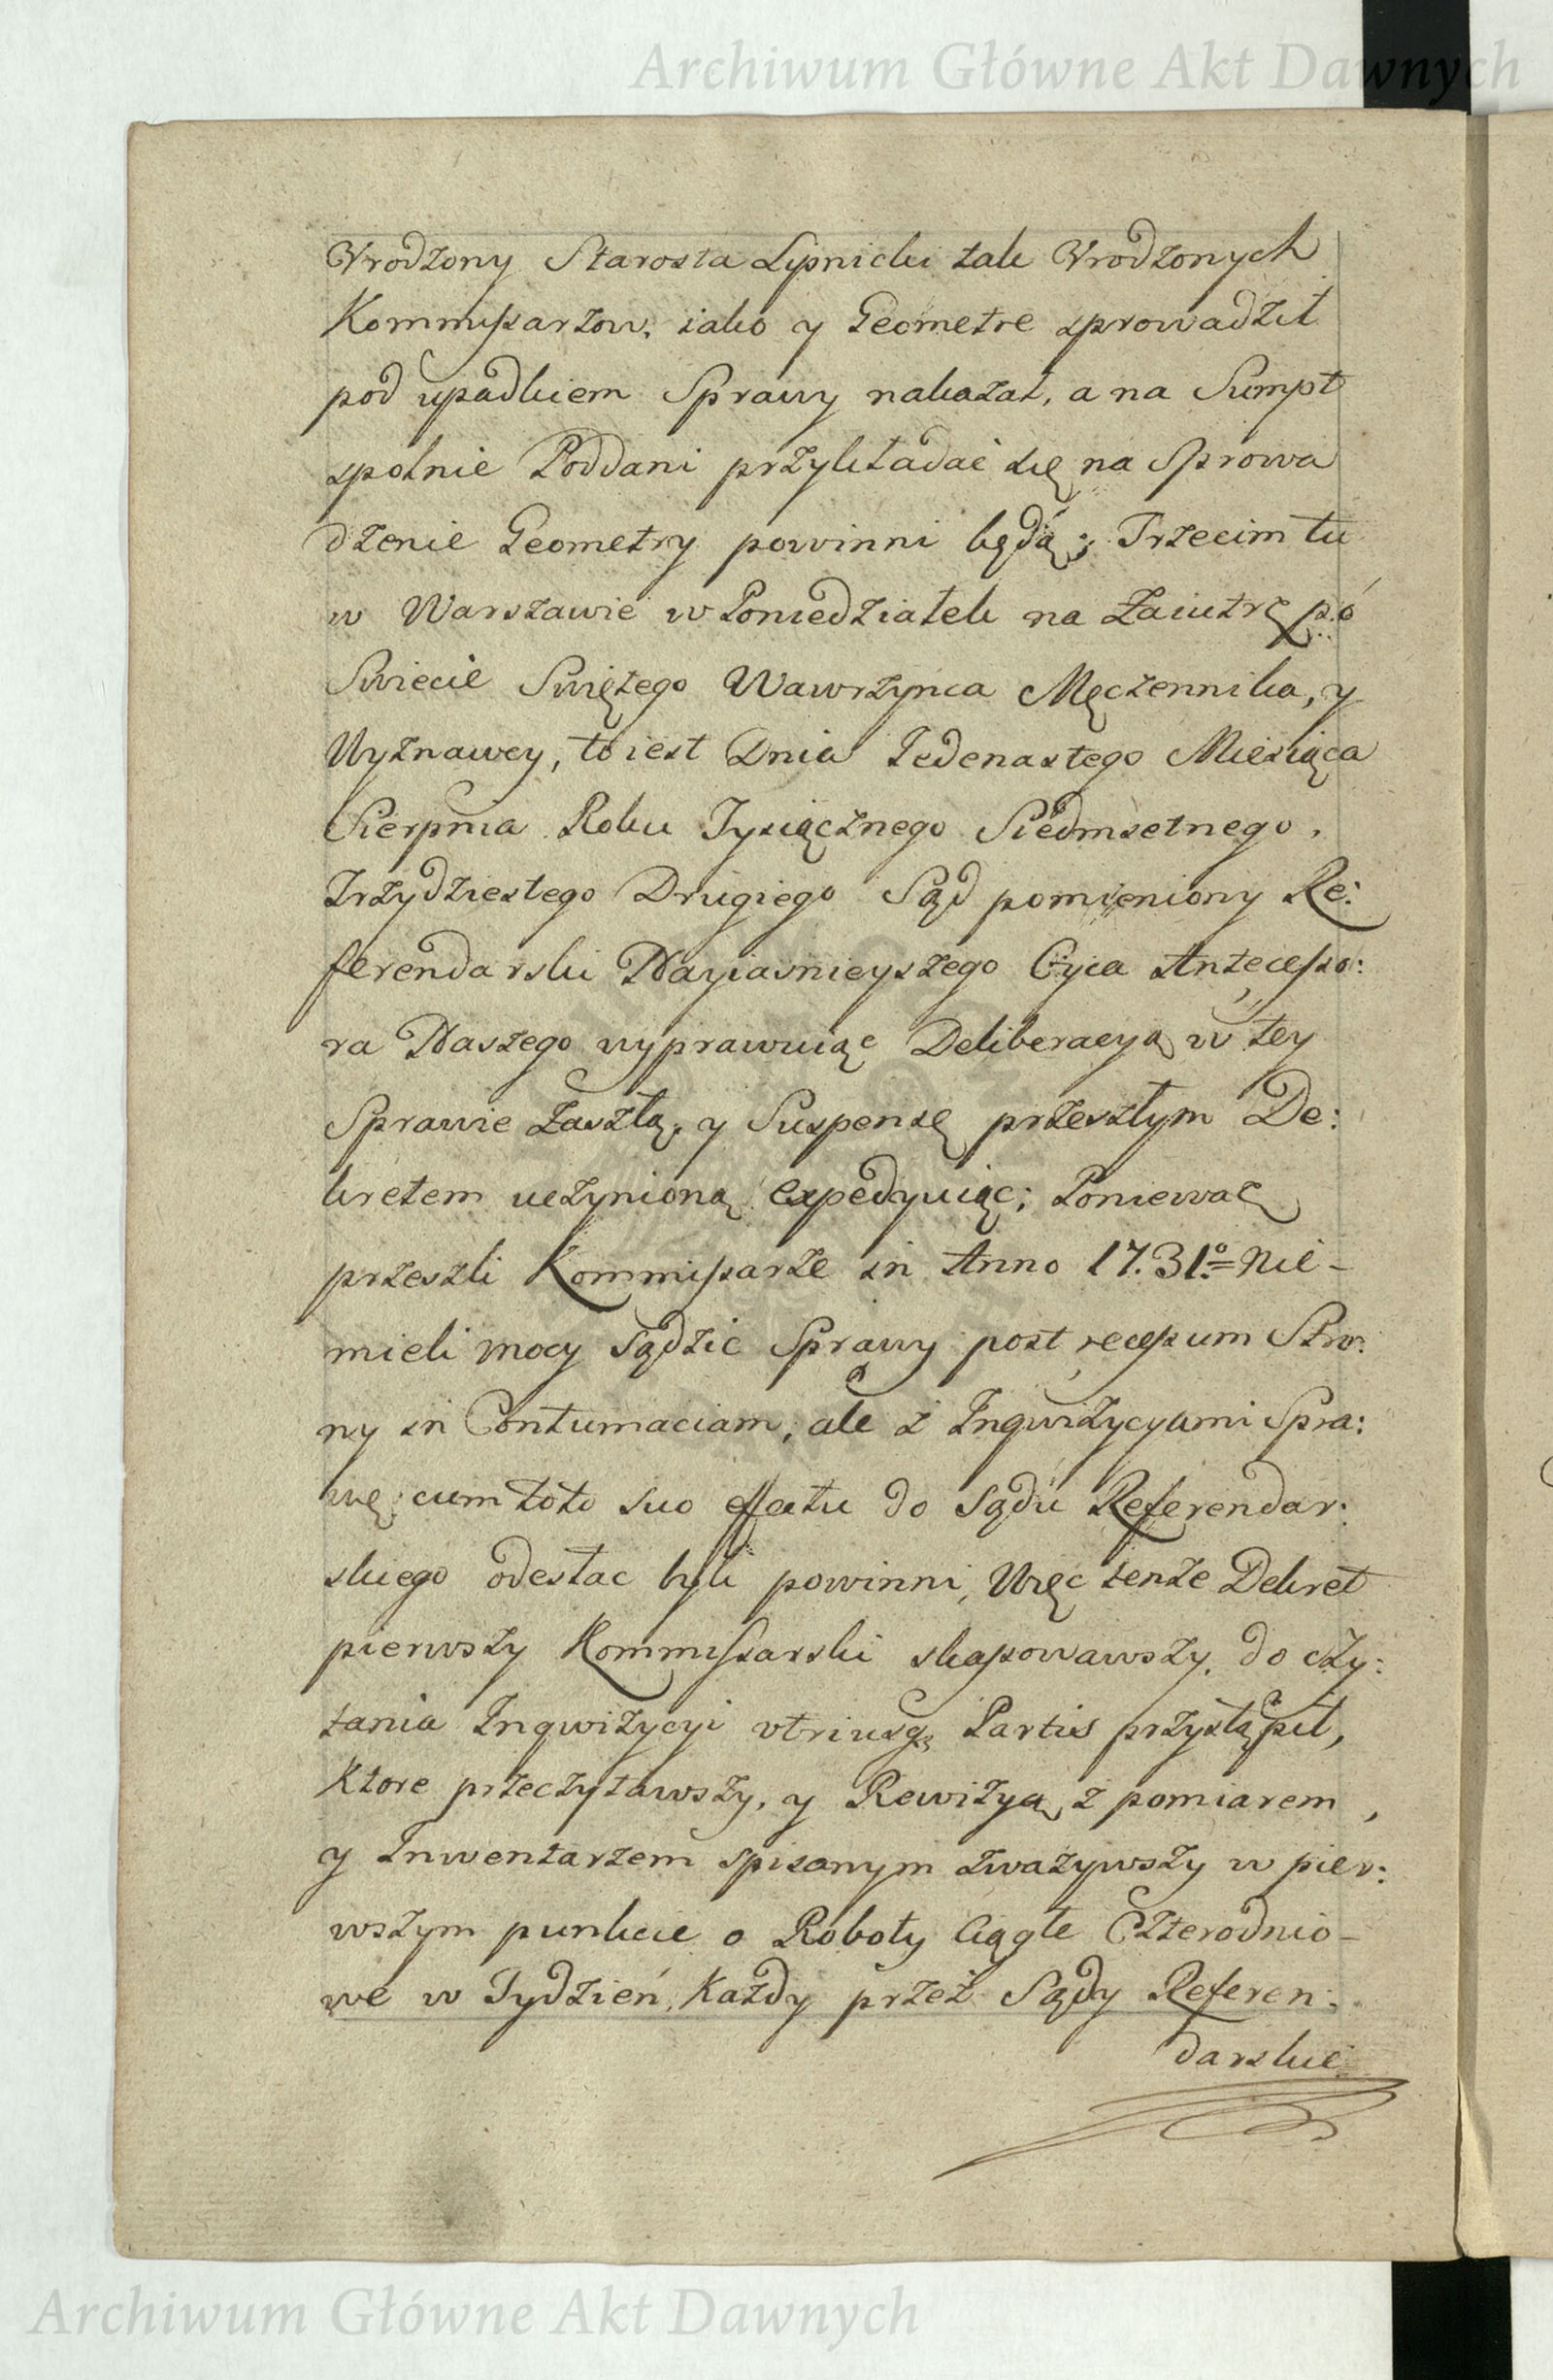 Archiwum Główne Akt Dawnych
Vrodzony Starosta Lipnicki tak Vrodzonych
Kommissarzow, iako y Geometre sprowadził
pod upadkiem Sprawy nakazał, a na Sumpt
spolnie Poddani przykładać się na Sprowa
dzenie Geometry powinni będą; Trzecim tu
w Warszawie w Poniedziałek na Zaiutrz po
Swięcie Swiętego Wawrzynca Męczennika, y
Wyznawcy, to iest Dnia Jedenastego Miesiąca
Sierpnia Roku Tysiącznego Siedmsetnego,
Trzydziestego Drugiego Sąd pomieniony Re:
ferendarski Nayiasnieyszego Oyca Antecesso:
ra Naszego wyprawuiąc Deliberacyą w tey
Sprawie zaszłą, y Suspensę przeszłym De:
kretem uczynioną expedyuiąc; Poniewaz
przeszli Kommissarze in Anno 17.31.º= Nie-
mieli mocy Sądzic Sprawy post recessum Stro:
ny in Contumaciam, ale z Inqwizycyami Spra:
wę cum toto suo effectu do Sądu Referendar:
skiego odesłac byli powinni, Więc tenze Dekret
pierwszy Kommissarski skassowawszy, do czy:
tania Inqwizycyi vtriusq Partis przystąpił,
Ktore przeczytawszy, y Rewizyą z pomiarem,
y Inwentarzem spisanym zwazywszy w pier:
wszym punkcie o Roboty Ciągłe Czterodnio-
we w Tydzień Kazdy przez Sądy Referen:
darskie
Archiwum Główne Akt Dawnych